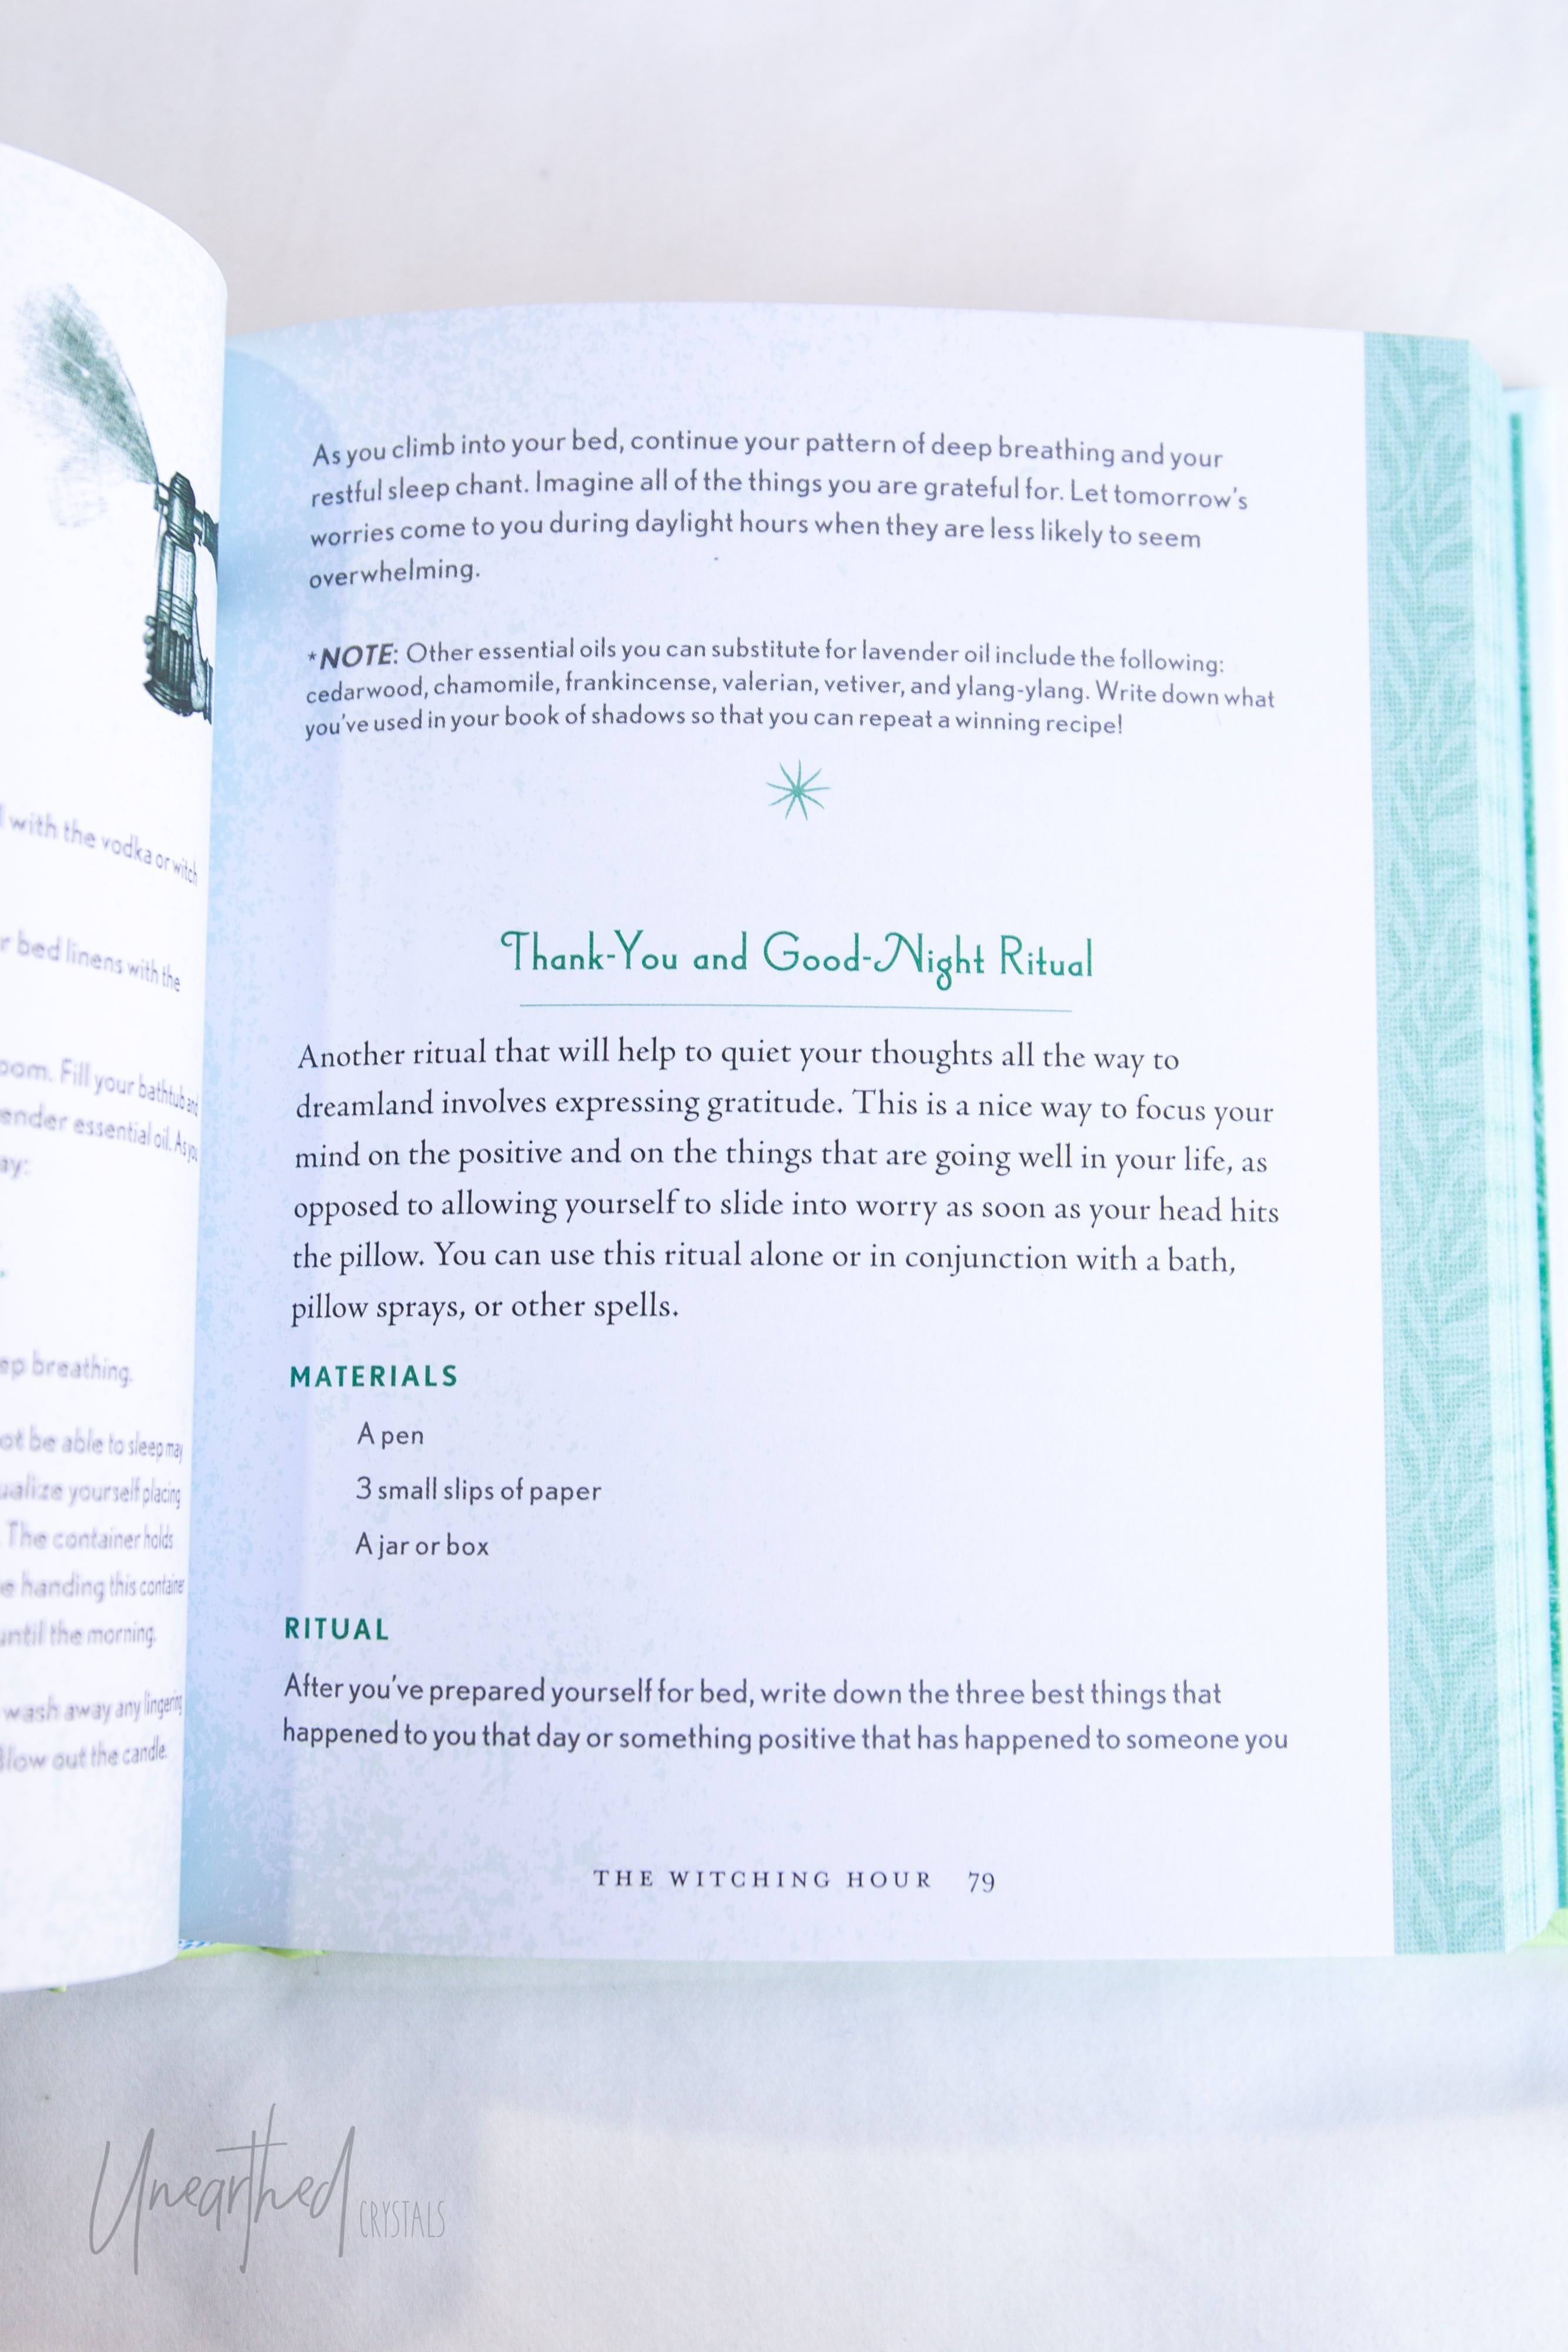 with the vodka or witch
bed linens with the
Fill your bathtub and
essential oil. As you
breathing.
be able to sleep may
yourself placing
The container holds
handing this container
until the morning.
wash away any lingering
out the candle.
As you climb into your bed, continue your pattern of deep breathing and your
restful sleep chant. Imagine all of the things you are grateful for. Let tomorrow's
worries come to you during daylight hours when they are less likely to seem
overwhelming.
*NOTE: Other essential oils you can substitute for lavender oil include the following:
cedarwood, chamomile, frankincense, valerian, vetiver, and ylang-ylang. Write down what
you've used in your book of shadows so that you can repeat a winning recipe!
Thank-You and Good-Night Ritual
Another ritual that will help to quiet your thoughts all the way to
dreamland involves expressing gratitude. This is a nice way to focus your
mind on the positive and on the things that are going well in your life, as
opposed to allowing yourself to slide into worry as soon as your head hits
the pillow. You can use this ritual alone or in conjunction with a bath,
pillow sprays, or other spells.
MATERIALS
A pen
3 small slips of paper
A jar or box
RITUAL
After you've prepared yourself for bed, write down the three best things that
happened to you that day or something positive that has happened to someone you
THE WITCHING HOUR 79
Unearthed CRYSTALS